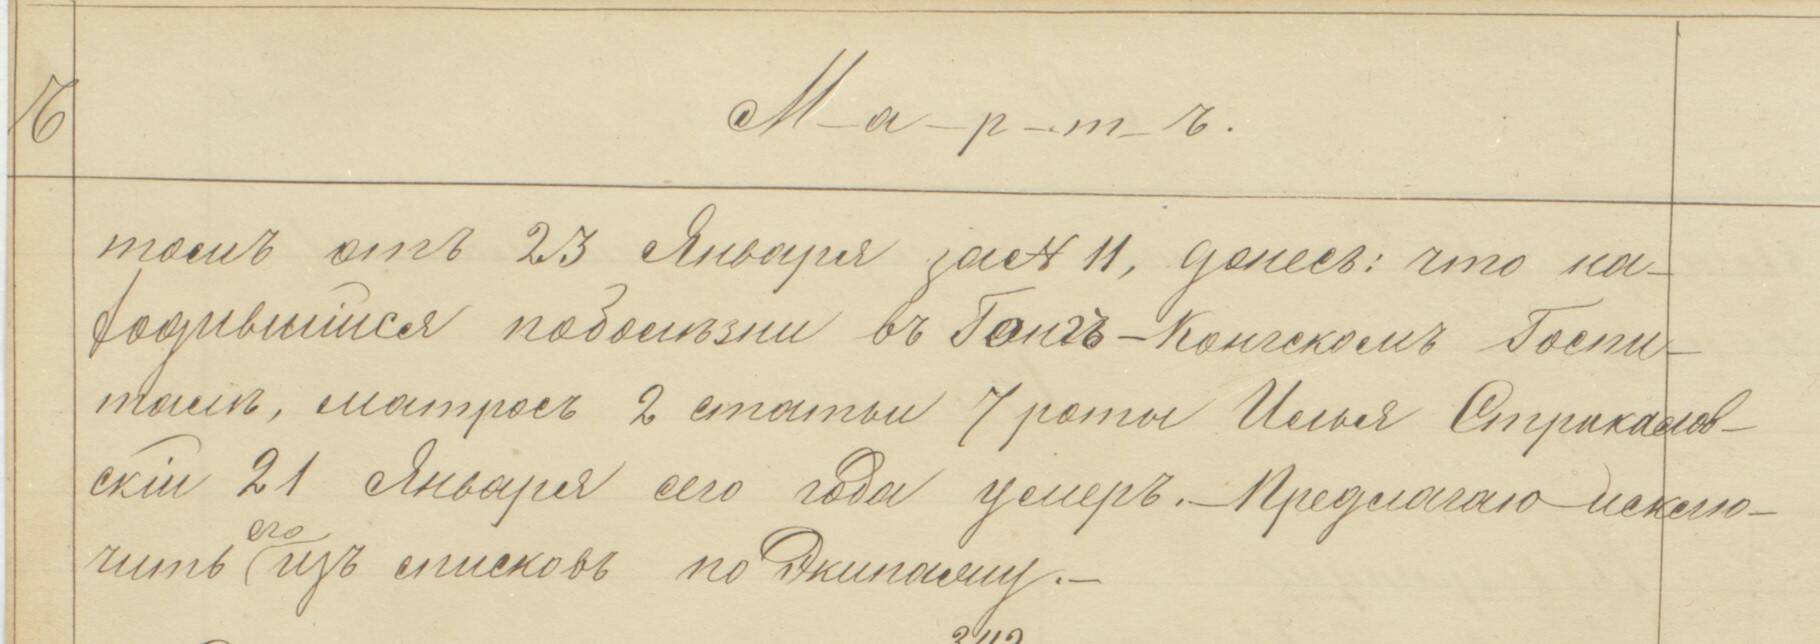 ъ
М-а-р-т-ъ.
томъ отъ 23 Января за № 11, донесъ: что на-
ходившійся поболѣзни въ Гонгъ-Конгскомъ Госпи-
талѣ, матросъ 2 статьи 7 роты Илья Стрикалов-
скій 21 Января сего года умеръ.- Предлагаю исклю-
чить его изъ списковъ по Экипажу.-
342